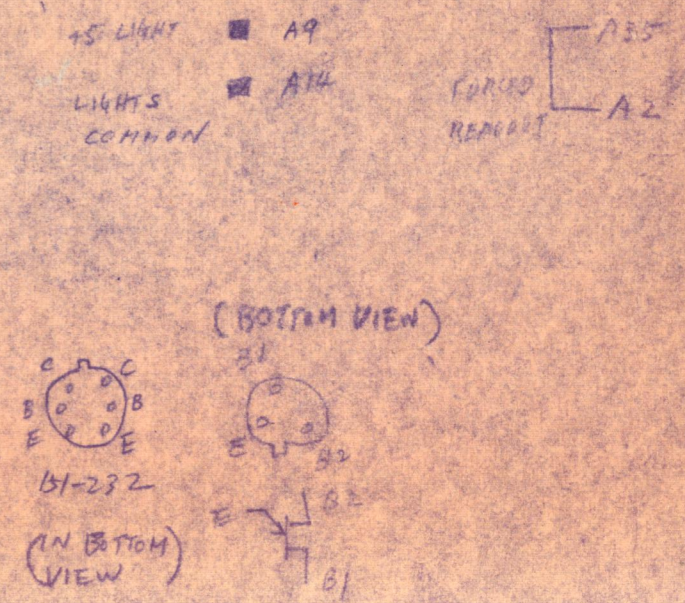 +5 LIGHT A9
LIGHTS A14
COMMON
FORCED
READOUT
A35
A2
(BOTTOM VIEW)
C C
B B
E E
151-232
(IN BOTTOM
VIEW)
B1
E
B2
E B2
B1